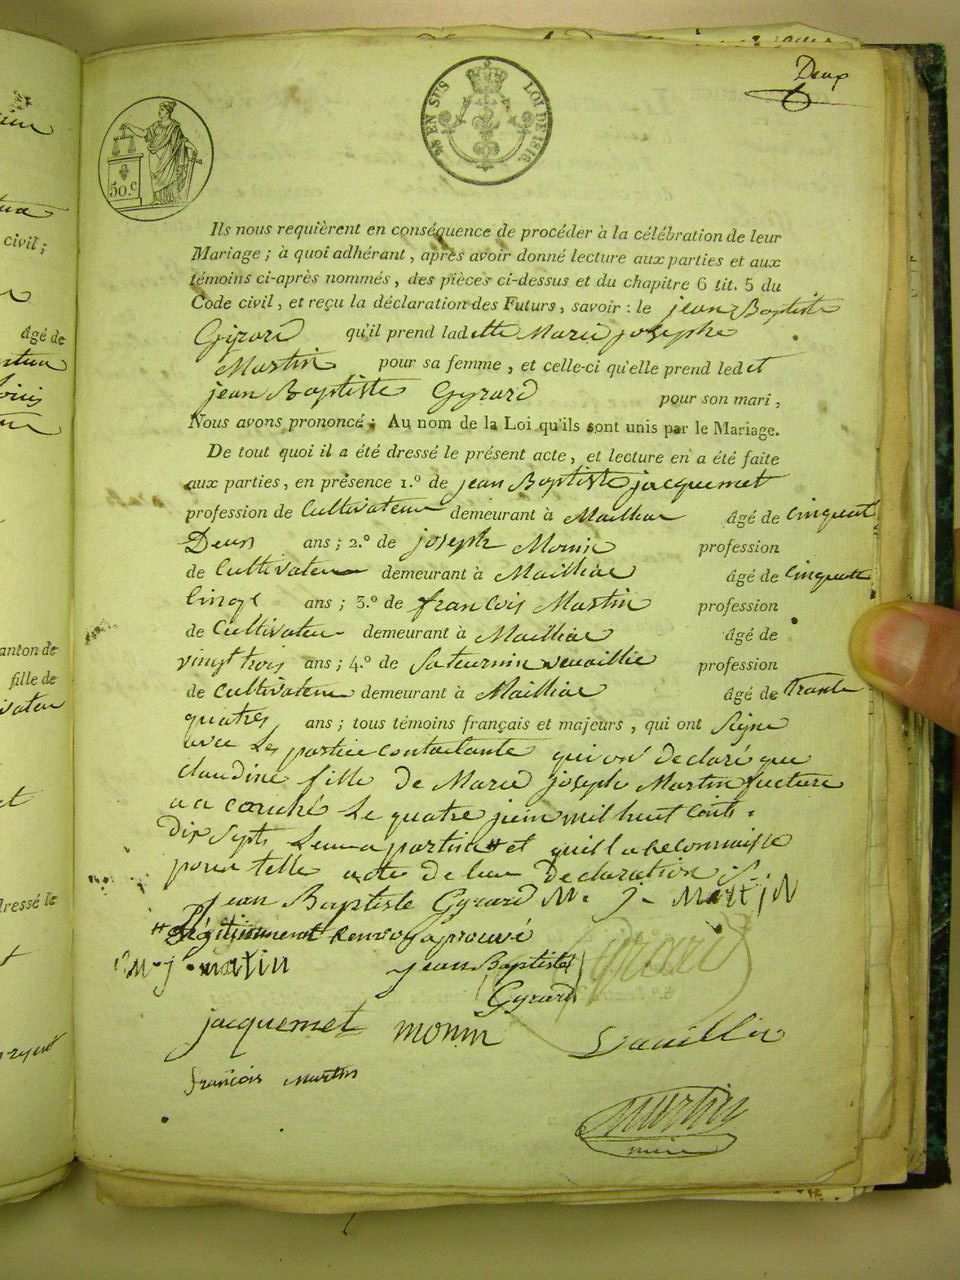 Deux
50.c
25 EN SUS LOI DE 1816
Ils nous requièrent en conséquence de procéder à la célébration de leur
Mariage ; à quoi adhérant, après avoir donné lecture aux parties et aux
témoins ci-après nommés, des pièces ci-dessus et du chapitre 6 tit. 5 du
Code civil, et reçu la déclaration des Futurs, savoir : le jean Baptiste
Gyrard qu'il prend ladette Marie josephe
Martin pour sa femme, et celle-ci qu'elle prend ledet
jean Baptiste Gyrard pour son mari,
Nous avons prononcé : Au nom de la Loi qu'ils sont unis par le Mariage.
De tout quoi il a été dressé le présent acte, et lecture en a été faite
aux parties, en présence 1.º de jean Baptiste jacquemet
profession de Cultivateur demeurant à Mailliac âgé de Cinquent
Deux ans ; 2.º de joseph Monin profession
de Cultivateur demeurant à Mailliac âgé de Cinquente
Cinqe ans ; 3.º de francois Martin profession
de Cultivateur demeurant à Mailliac âgé de
vingt trois ans ; 4.º de Saturnin profession
de Cultivateur demeurant à Mailliac âgé de trante
quatres ans ; tous témoins français et majeurs, qui ont Signe
avec Les partiee Contactante qui on Declaré que
Claudine fille De Marie joseph Martin fucture
a a couché Le quatre juin mil huit Cents
Dix Septs Leur a partin # et quil la Reconnaisse
pour telle acte De leur Declaration
jean Baptiste Gyrard M. j. Martin
# Légitimment Renvoy aprouvé Gyrard
m. j. matin jean Baptiste
Gyrard
jacquemet monin
francois Martin
Martin
mere
civil ;
âgé de
anton de
fille de
dressé le